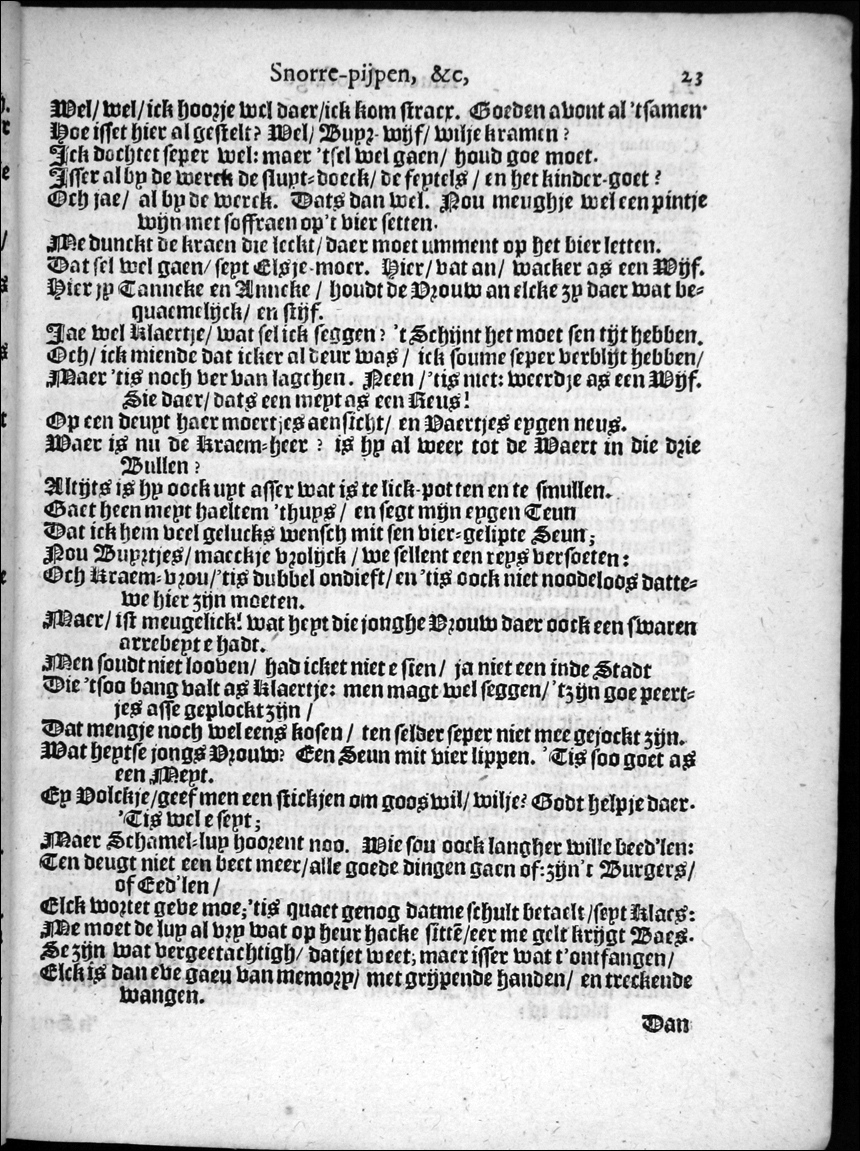 Snorre-pijpen, &c, 23
Wel/ wel/ ick hoorje wel daer/ick kom stracx. Goeden avont al 'tsamen.
Hoe isset hier al gestelt? Wel/ Buyr-wijf/ wilje kramen?
Ick dochtet seper wel: maer 'tsel wel gaen/ houd goe moet.
Isser al by de werck de sluyt-doeck/ de feytels / en het kinder-goet?
Och jae/ al by de werck. Dats dan wel. Nou meughje wel een pintje
wijn met soffraen op't vier setten.
Me dunckt de kraen die leckt/ daer moet umment op het bier letten.
Dat sel wel gaen/ seyt Elsje-moer. Hier/ vat an/ wacker as een Wijf.
Hier jy Tanneke en Anneke / houdt de Vrouw an elcke zy daer wat be-
quaemelijck/ en stijf.
Jae wel Klaertje/ wat sel ick seggen? 't Schijnt het moet sen tijt hebben.
Och/ ick miende dat icker al deur was / ick soume seper verblijt hebben/
Maer 'tis noch ver van lagchen. Neen /'tis niet: weerdje as een Wijf.
Sie daer/ dats een meyt as een Reus!
Op een deuyt haer moertjes aensicht/ en Vaertjes eygen neus.
Waer is nu de Kraem-heer? is hy al weer tot de Waert in die drie
Bullen?
Altijts is hy oock uyt asser wat is te lick-potten en te smullen.
Gaet heen meyt haeltem 'thuys / en segt mijn eygen Teun
Dat ick hem veel gelucks wensch mit sen vier-gelipte Seun;
Nou Buyrtjes/ maeckje vrolijck / we sellent een reys versoeten:
Och Kraem-vrou/'tis dubbel ondieft/ en 'tis oock niet noodeloos datte-
we hier zijn moeten.
Maer/ ist meugelick! wat heyt die jonghe Vrouw daer oock een swaren
arrebeyt e hadt.
Men soudt niet looven/ had icket niet e sien/ ja niet een inde Stadt
Die 'tsoo bang valt as Klaertje: men magt wel seggen/ 'tzijn goe peert-
jes asse geplockt zijn /
Dat mengje noch wel eens kosen / ten selder seper niet mee gejockt zijn.
Wat heytse jongs Vrouw? Een Seun mit vier lippen. 'Tis soo goet as
een Meyt.
Ey Volckje/geef men een stickjen om goos wil/ wilje? Godt helpje daer.
'Tis wel e seyt;
Maer Schamel-luy hoorent noo. Wie sou oock langher wille beed'len:
Ten deugt niet een beet meer/alle goede dingen gaen of: zijn't Burgers/
of Eed'len /
Elck wortet geve moe; 'tis quaet genog datme schult betaelt /seyt Klaes:
Me moet de luy al vry wat op heur hacke sittē/eer me gelt krijgt Baes.
Se zijn wat vergeetachtigh/ datjet weet; maer isser wat t'ontfangen/
Elck is dan eve gaeu van memory/ met grijpende handen/ en treckende
wangen.
Dan